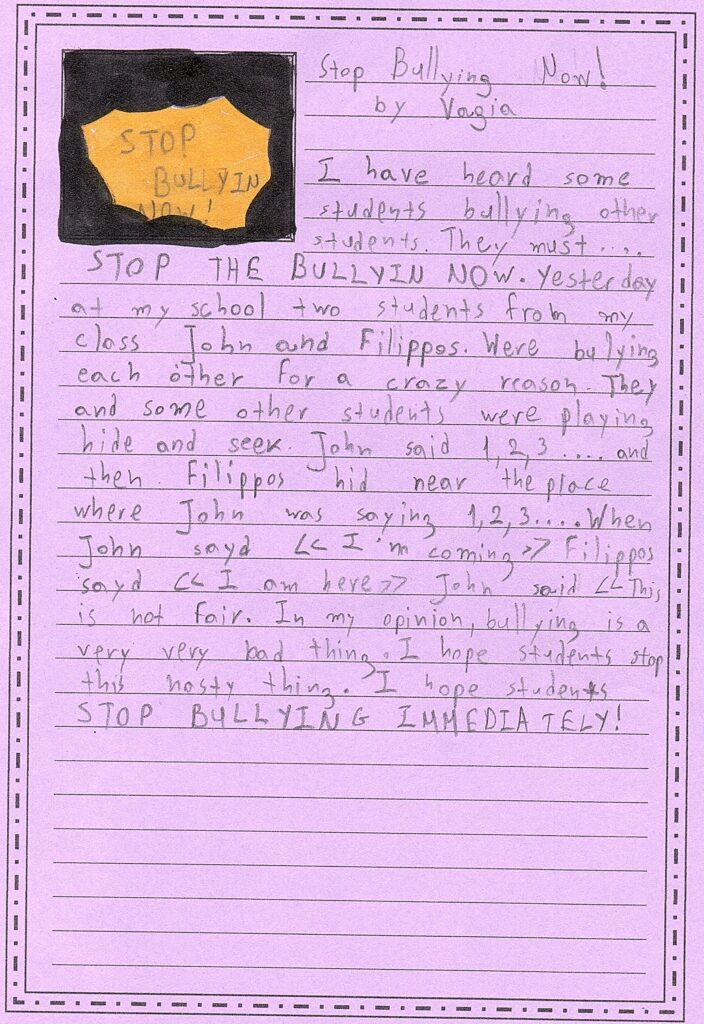 STOP
BULLYIN
NOW!
Stop Bullying Now!
by Vagia
I have heard some
students bullying other
students. They must ....
STOP THE BULLYIN NOW. Yesterday
at my school two students from my
class John and Filippos. Were bullying
each other for a crazy reason. They
and some other students were playing
hide and seek. John said 1,2,3 .... and
then. Filippos hid near the place
where John was saying 1,2,3.... When
John sayd << I'm coming >> Filippos
sayd << I am here >> John said << This
is not fair. In my opinion, bullying is a
very very bad thing. I hope students stop
this nasty thing. I hope students
STOP BULLYING IMMEDIATELY!